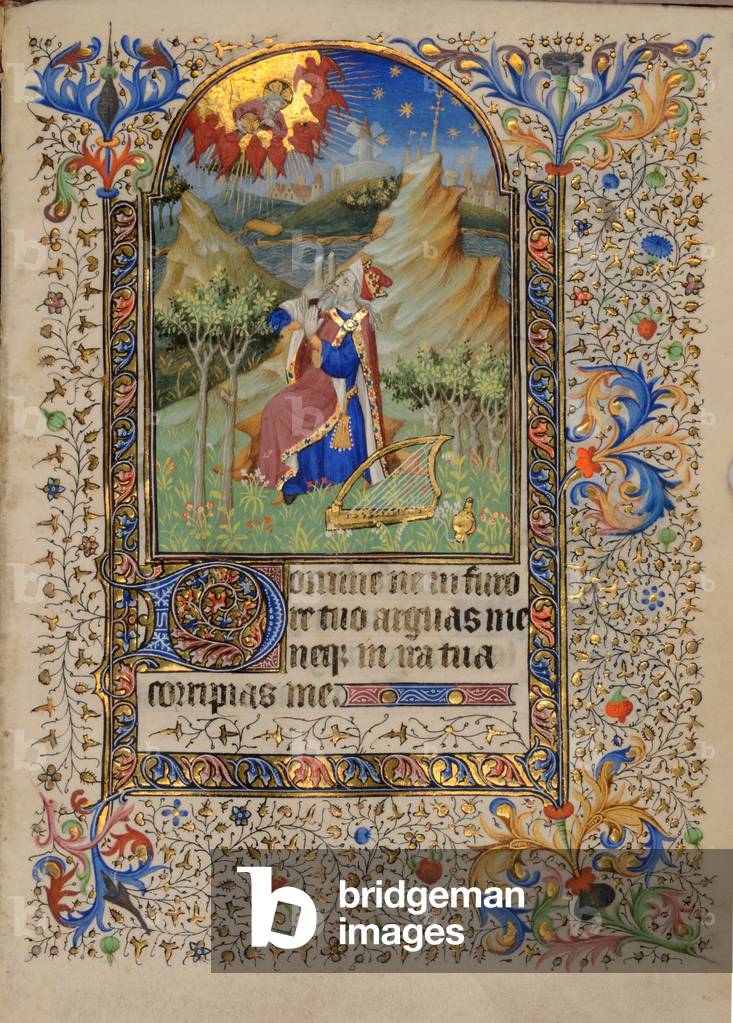 Domine ne in furo
re tuo arguas me
neq; in ira tua
corripias me.
bridgeman
images